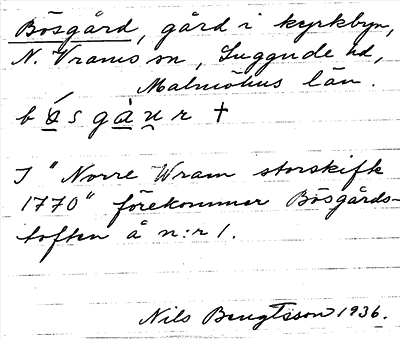 Bösgård, gård i kyrkbyn,
N. Vrams sn, Luggude hd,
Malmöhus län.
gàu̯r †
I "Norre Wram storskifte
1770" förekommer Bösgårds-
toften å n:r 1.
Nils Bengtsson 1936.